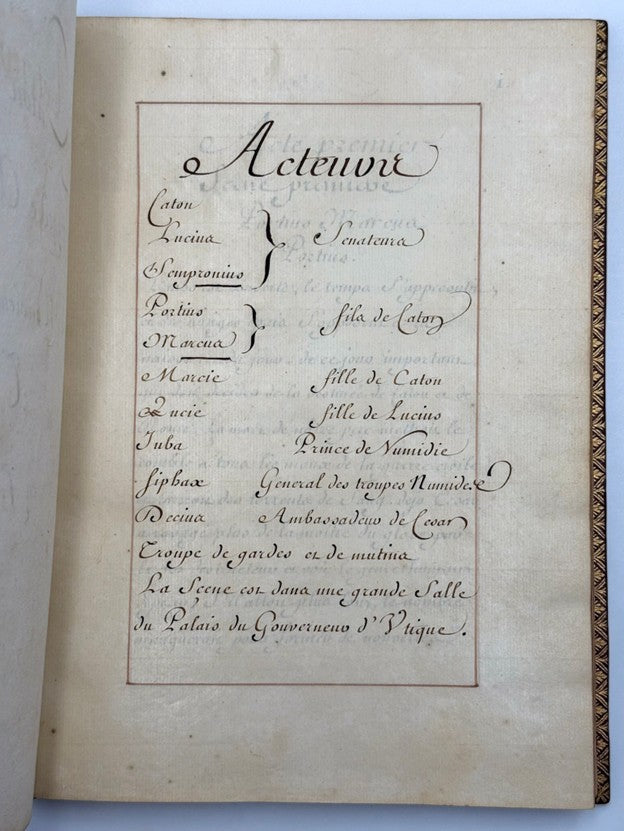 Acteurs
Caton
Lucius
Sempronius
Senateurs
Portius
Marcus
fils de Caton
Marcie fille de Caton
Lucie fille de Lucius
Juba Prince de Numidie
Siphax General des troupes Numides
Decius Ambassadeur de Cesar
Troupe de gardes et de mutins
La Scene est dans une grande Salle
du Palais du Gouverneur d'Utique.